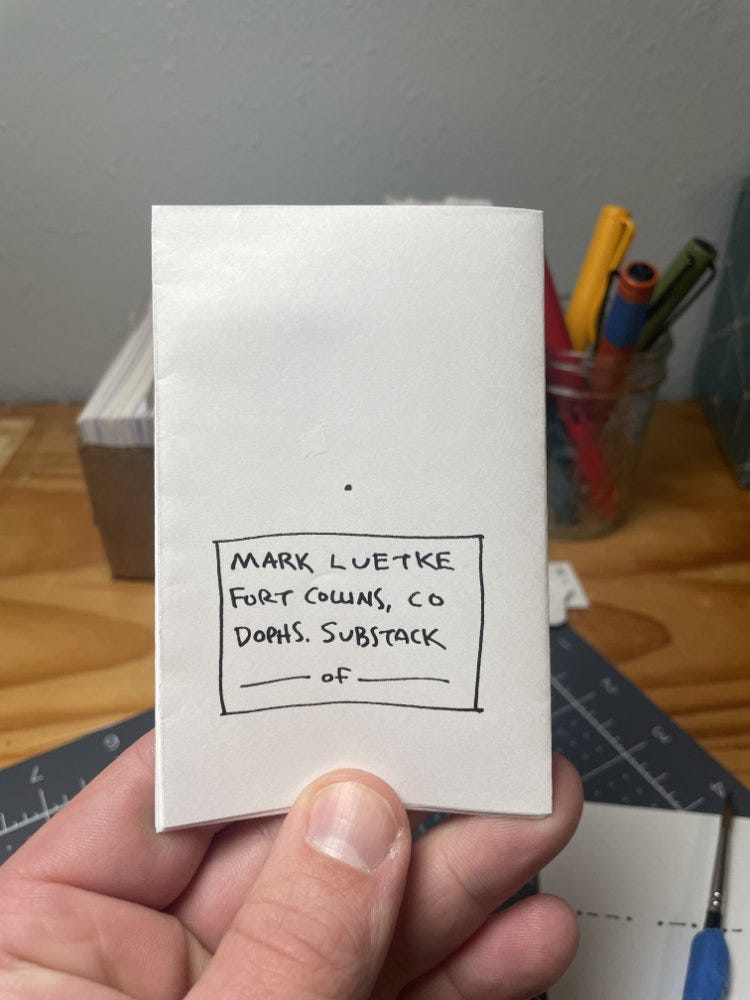 MARK LUETKE
FORT COLLINS, CO
DOPHS. SUBSTACK
____ of ____
7
6
1
2
3
4